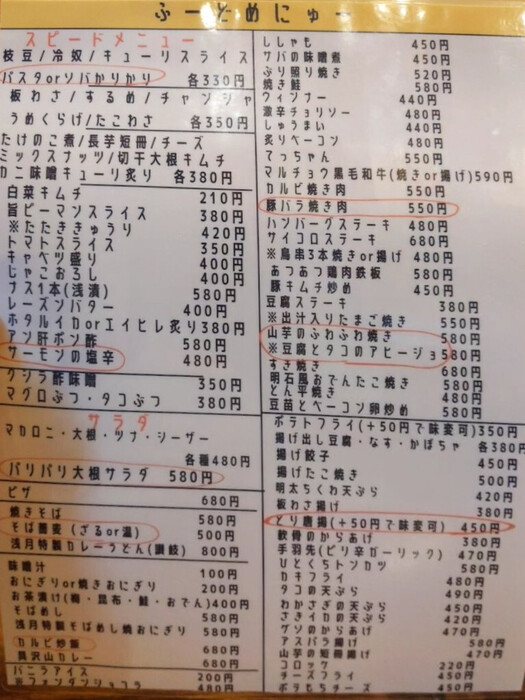 ふーどめにゅー
スピードメニュー
枝豆/冷奴/キューリスライス
パスタorソバかりかり 各330円
板わさ/するめ/チャンジャ
うめくらげ/たこわさ 各350円
たけのこ煮/長芋短冊/チーズ
ミックスナッツ/切干大根キムチ
カニ味噌キューリ炙り 各380円
白菜キムチ 210円
旨ピーマンスライス 380円
※たたききゅうり 420円
トマトスライス 350円
キャベツ盛り 400円
じゃこおろし 400円
ナス1本(浅漬) 580円
レーズンバター 400円
ホタルイカorエイヒレ炙り380円
アン肝ポン酢 580円
サーモンの塩辛 480円
クジラ酢味噌 350円
マグロぶつ・タコぶつ 380円
サラダ
マカロニ・大根・ツナ・シーザー
各種480円
パリパリ大根サラダ 580円
ピザ 680円
焼きそば 580円
そば蕎麦(ざるor温) 500円
浅月特製カレーうどん(讃岐) 800円
味噌汁 100円
おにぎりor焼きおにぎり 200円
お茶漬け(梅・昆布・鮭・おでん)400円
そばめし 580円
浅月特製そばめし焼おにぎり 580円
カルビ炒飯 680円
具沢山カレー 680円
バニラアイス 200円
※フォンダンショコラ 480円
ししゃも 450円
サバの味噌煮 450円
ぶり照り焼き 520円
焼き鮭 580円
ウィンナー 440円
激辛チョリソー 480円
しゅうまい 440円
炙りベーコン 480円
てっちゃん 550円
マルチョウ黒毛和牛(焼きor揚げ)590円
カルビ焼き肉 550円
豚バラ焼き肉 550円
ハンバーグステーキ 480円
サイコロステーキ 680円
※鳥串3本焼きor揚げ 480円
あつあつ鶏肉鉄板 580円
豚キムチ炒め 450円
豆腐ステーキ 380円
※出汁入りたまご焼き 550円
山芋のふわふわ焼き 580円
※豆腐とタコのアヒージョ580円
すき焼き 680円
明石風おでんたこ焼き 580円
とん平焼き 480円
豆苗とベーコン卵炒め 580円
ポテトフライ(+50円で味変可)350円
揚げ出し豆腐・なす・かぼちゃ 各380円
揚げ餃子 450円
揚げたこ焼き 500円
明太ちくわ天ぷら 420円
板わさ揚げ 380円
とり唐揚(+50円で味変可) 450円
軟骨のからあげ 380円
手羽先(ピリ辛ガーリック) 470円
ひとくちトンカツ 580円
カキフライ 480円
タコの天ぷら 490円
わかさぎの天ぷら 450円
さきイカの天ぷら 420円
ゲソのからあげ 470円
アスパラ揚げ 580円
山芋の短冊揚げ 470円
コロッケ 220円
チーズフライ 450円
ポテもちチーズ 450円